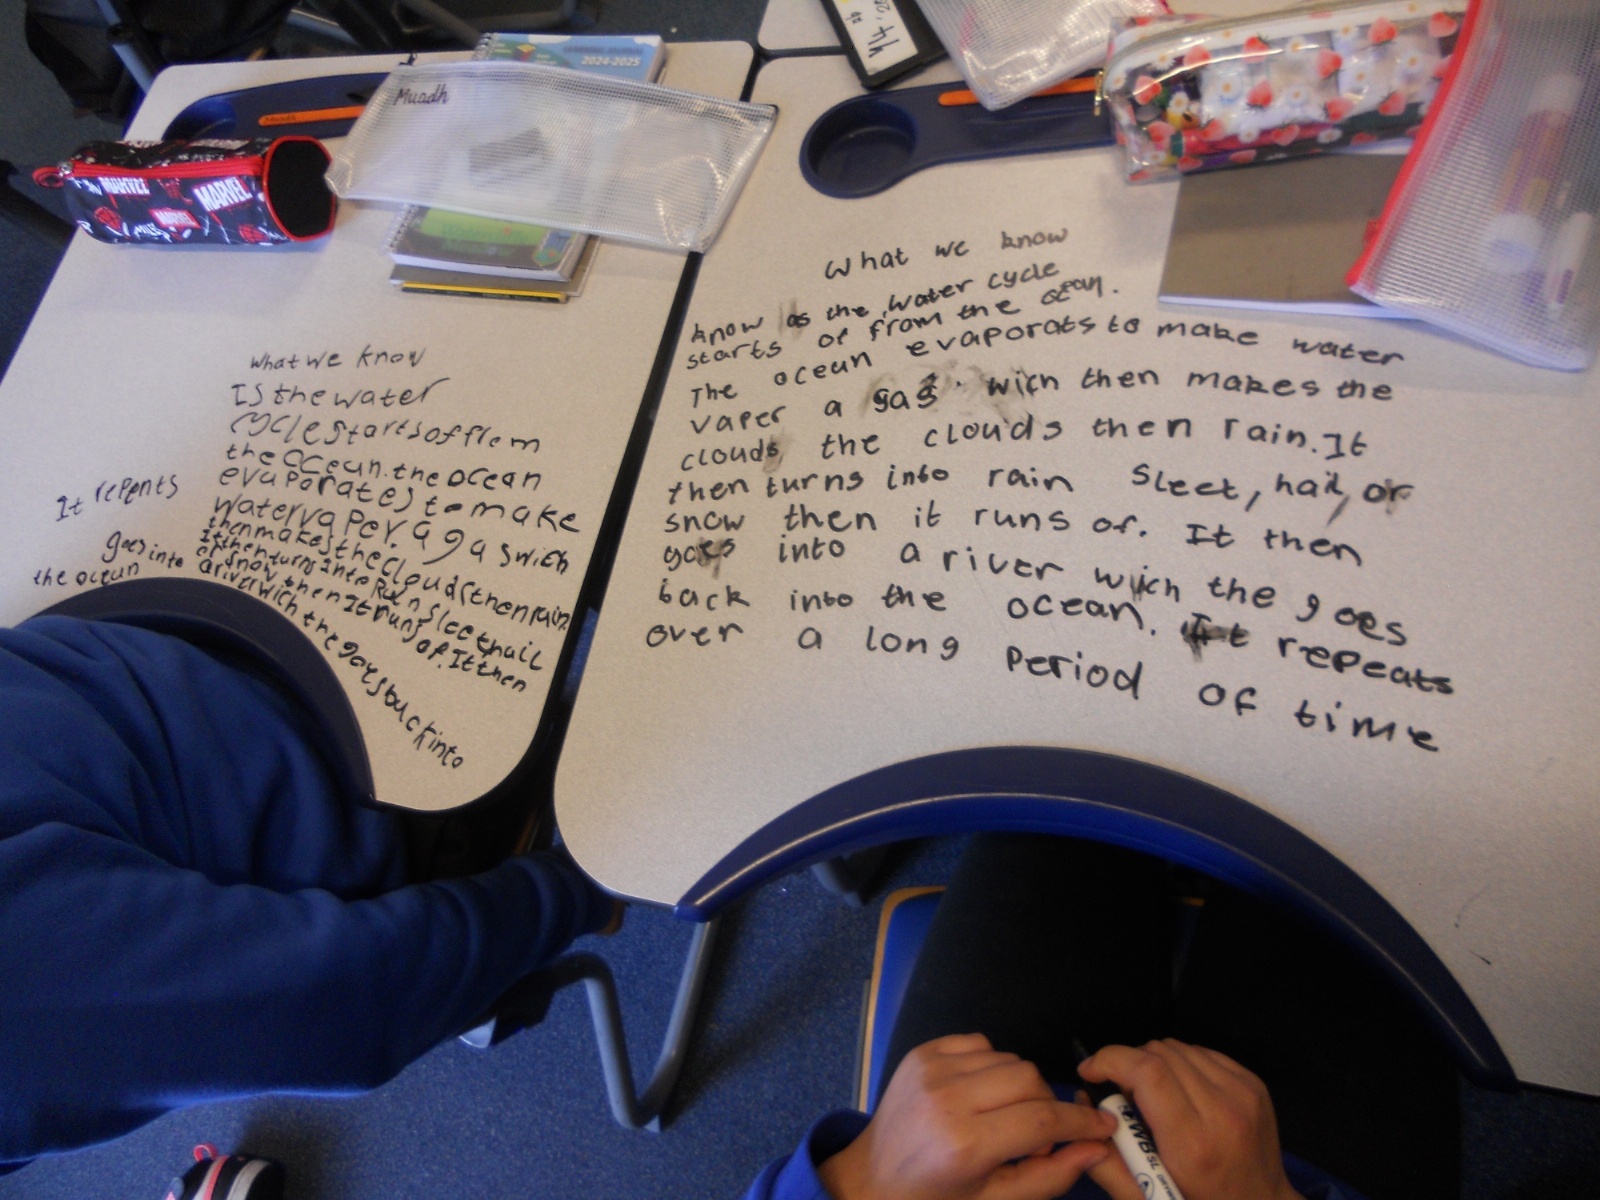 LEARNING JOURNAL
2024-2025
Muadh
Muadh
MARVEL
MARVEL
MARVEL
MILES
what we know
Is the water
cycle starts of from
the ocean. the ocean
evaporates to make
water vaper. a gas wich
then makes the clouds then rain.
It then turns into Rain sleet hail
or snow then It runs of. It then
a river wich the goes back into
It repents
goes into
the ocean
What we know
know as the water cycle
starts of from the ocean.
The ocean evaporats to make water
vaper a gas. wich then makes the
clouds the clouds then rain. It
then turns into rain Sleet, hail, or
snow then it runs of. It then
goes into a river wich the goes
back into the ocean. It repeats
over a long Period of time